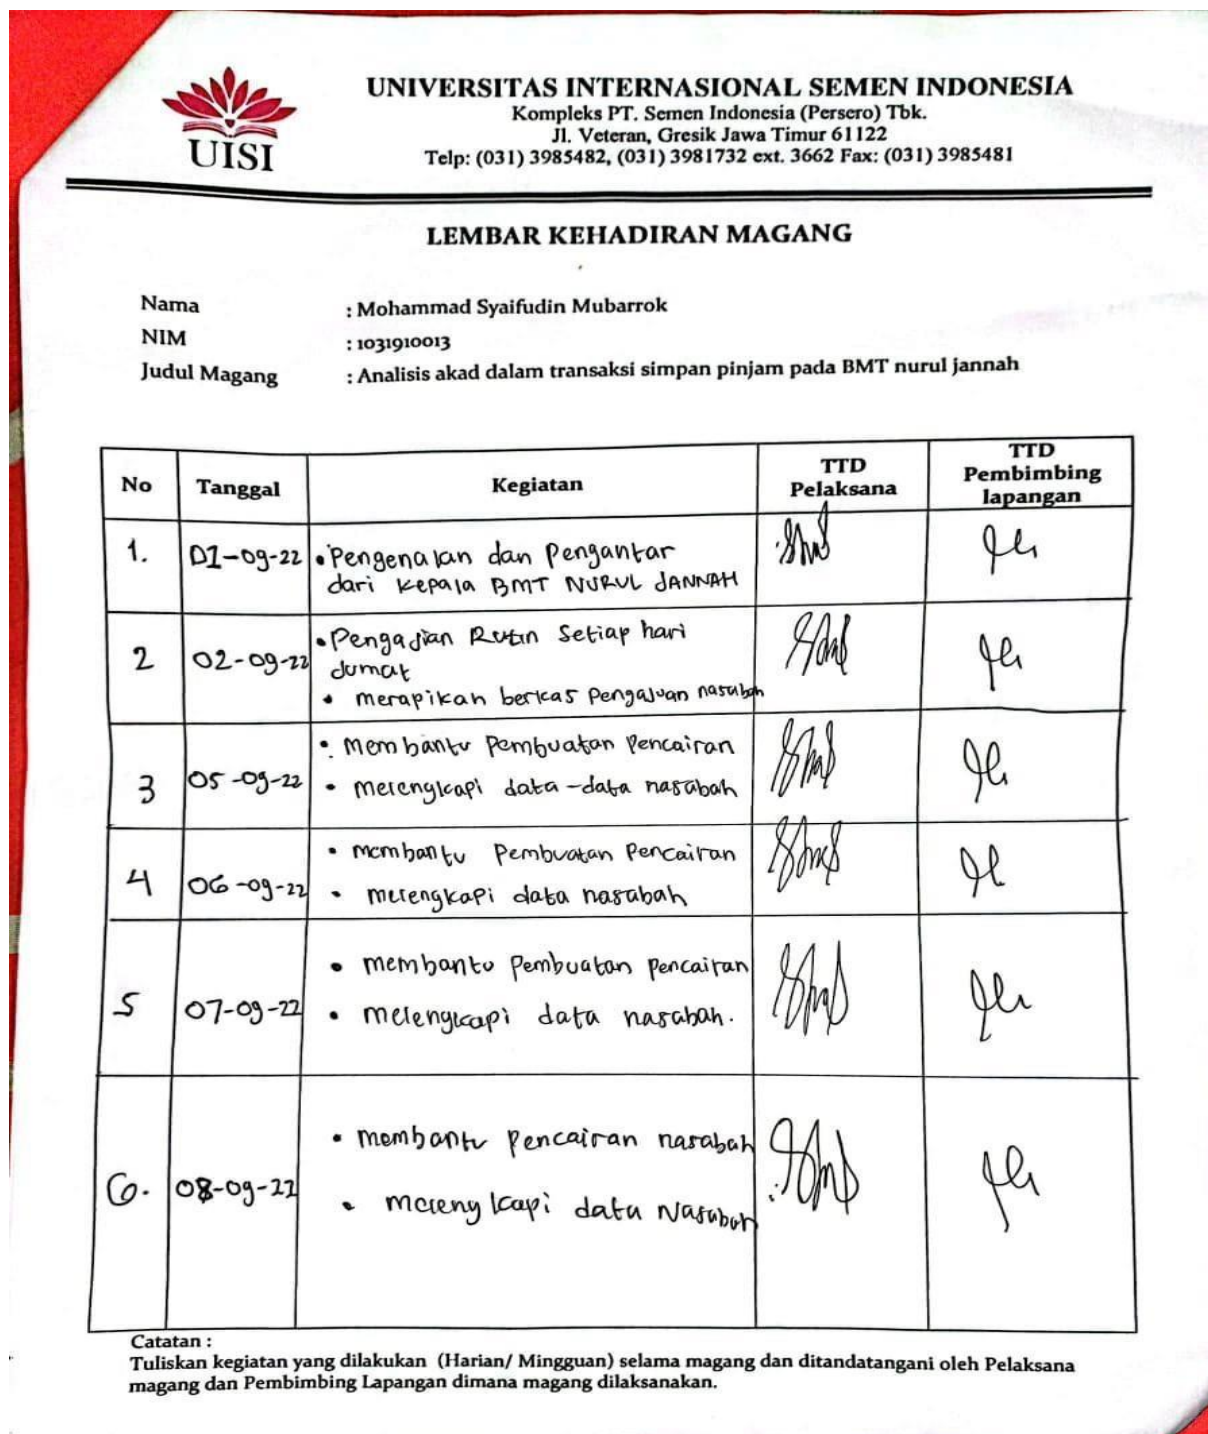 UISI
UNIVERSITAS INTERNASIONAL SEMEN INDONESIA
Kompleks PT. Semen Indonesia (Persero) Tbk.
Jl. Veteran, Gresik Jawa Timur 61122
Telp: (031) 3985482, (031) 3981732 ext. 3662 Fax: (031) 3985481
LEMBAR KEHADIRAN MAGANG
Nama : Mohammad Syaifudin Mubarrok
NIM : 1031910013
Judul Magang : Analisis akad dalam transaksi simpan pinjam pada BMT nurul jannah
No Tanggal Kegiatan TTD Pelaksana TTD Pembimbing lapangan
1. 01-09-22 • Pengenalan dan Pengantar
dari Kepala BMT NURUL JANNAH
2 02-09-22 • Pengajian Rutin Setiap hari
Jumat
• merapikan berkas Pengajuan nasabah
3 05-09-22 • Membantu Pembuatan Pencairan
• melengkapi data-data nasabah
4 06-09-22 • membantu Pembuatan Pencairan
• melengkapi data nasabah
5 07-09-22 • membantu Pembuatan pencairan
• melengkapi data nasabah.
6. 08-09-22 • membantu pencairan nasabah
• melengkapi data Nasabah
Catatan :
Tuliskan kegiatan yang dilakukan (Harian/ Mingguan) selama magang dan ditandatangani oleh Pelaksana
magang dan Pembimbing Lapangan dimana magang dilaksanakan.